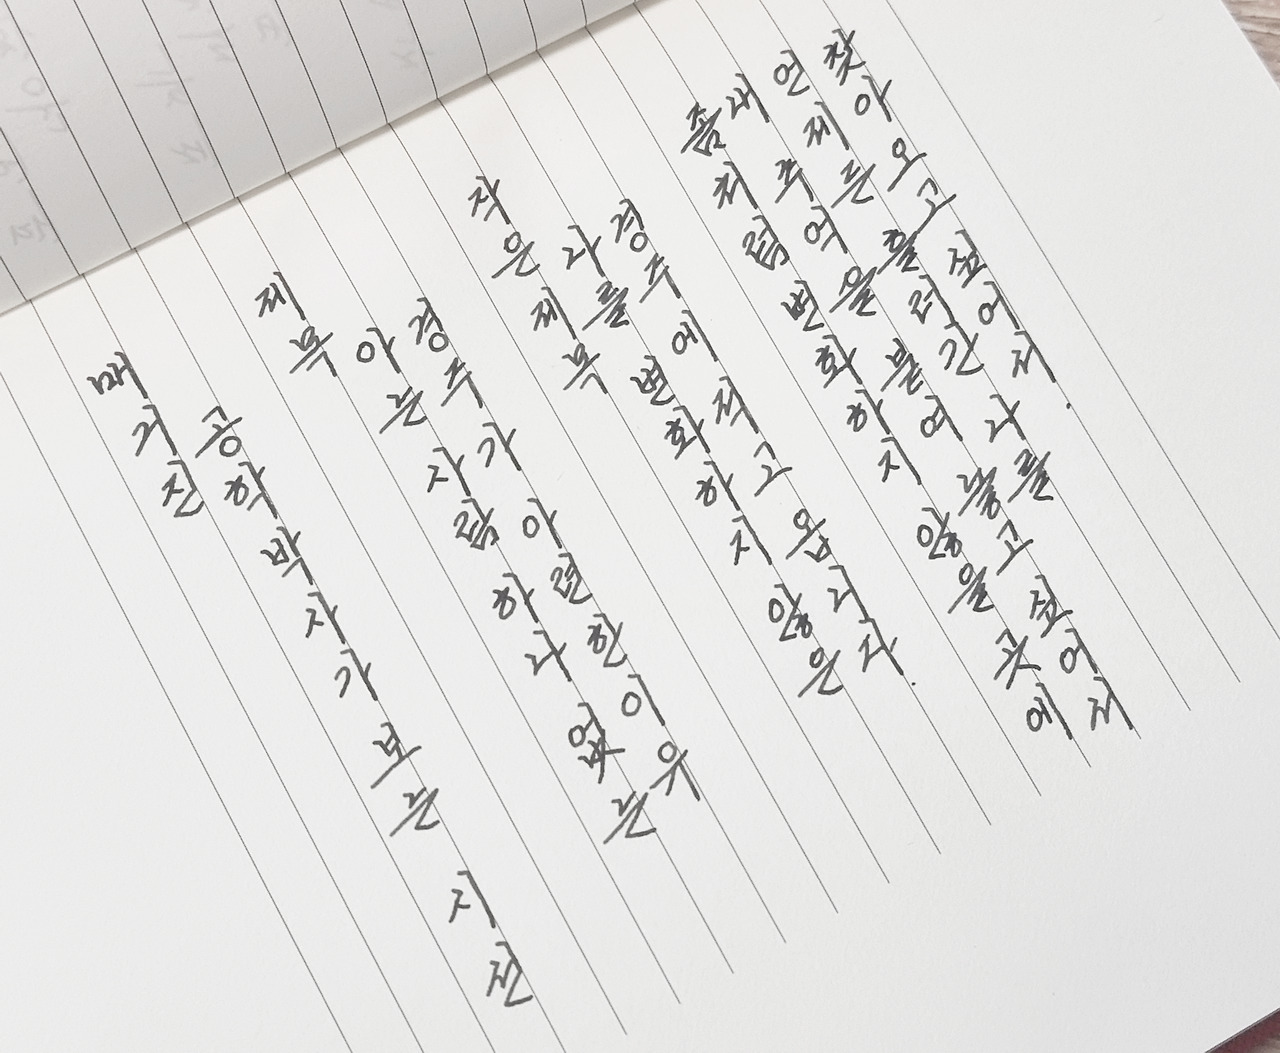 매거진
공학박사가 보는 시선
제목
아는 사람 하나 없는
경주가 아련한 이유
작은제목
나를 변화하지 않은
경주에 적고 옵니다.
좀처럼 변화하지 않을 곳에
내 추억을 붙여 놓고 싶어서
언제든 흘러간 나를
찾아오고 싶어서.